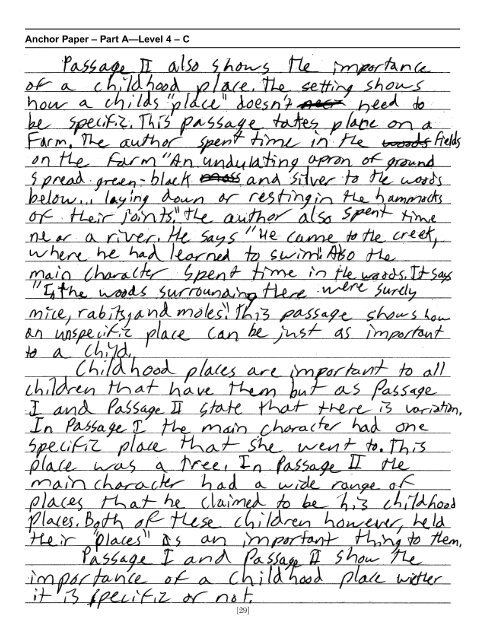 Anchor Paper – Part A—Level 4 – C
Passage II also shows the importance
of a childhood place. The setting shows
how a childs "place" doesn't need to
be specific. This passage takes place on a
Farm. The author spent time in the fields
on the farm "An undulating apron of ground
spread green-black and silver to the woods
below... laying down or resting in the hammocks
of their joints." The author also spent time
near a river. He says "He came to the creek,
where he had learned to swim." Also the
main character spent time in the woods. It says
"In the woods surrounding there were surely
mice, rabits, and moles." This passage shows how
an unspecific place can be just as important
to a child.
Childhood places are important to all
children that have them but as Passage
I and Passage II state that there is variation.
In Passage I the main character had one
specific place that she went to. This
place was a tree. In Passage II the
main character had a wide range of
places that he claimed to be his childhood
places. Both of these children however, held
their "places" as an important thing to them.
Passage I and Passage II show the
importance of a childhood place wether
it is specific or not.
[29]